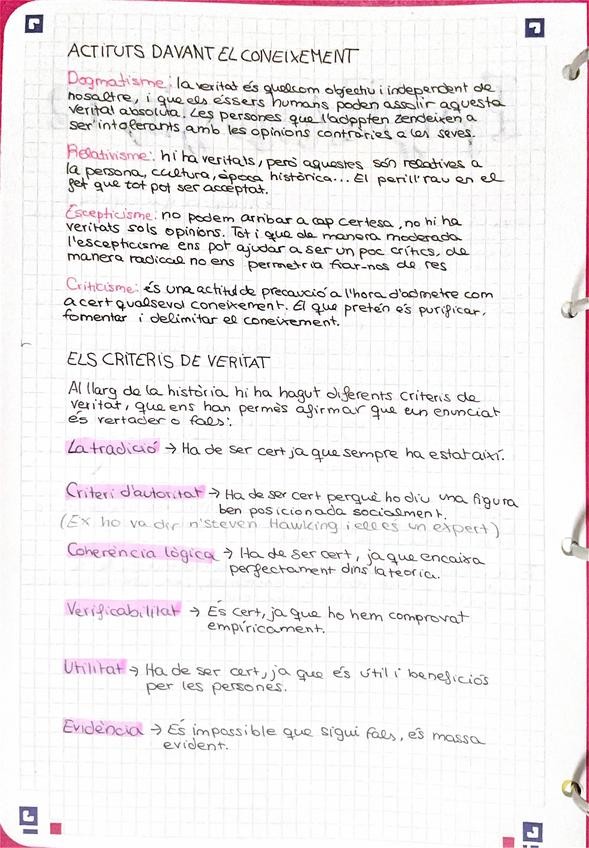 ACTITUTS DAVANT EL CONEIXEMENT
Dogmatisme: la veritat és quelcom objectiu i independent de
nosaltre, i que els éssers humans poden assolir aquesta
veritat absoluta. Les persones que l'adopten tendeixen a
ser intolerants amb les opinions contràries a les seves.
Relativisme: hi ha veritats, però aquestes són relatives a
la persona, cultura, època històrica... El perill rau en el
fet que tot pot ser acceptat.
Escepticisme: no podem arribar a cap certesa, no hi ha
veritats sols opinions. Tot i que de manera moderada
l'escepticisme ens pot ajudar a ser un poc crítics, de
manera radical no ens permetria fiar-nos de res
Criticisme: és una actitud de precaució a l'hora d'admetre com
a cert qualsevol coneixement. El que pretén és purificar,
fomentar i delimitar el coneixement.
ELS CRITERIS DE VERITAT
Al llarg de la història hi ha hagut diferents criteris de
veritat, que ens han permès afirmar que un enunciat
és vertader o fals:
La tradició → Ha de ser cert ja que sempre ha estat així.
Criteri d'autoritat → Ha de ser cert perquè ho diu una figura
ben posicionada socialment.
(Ex ho va dir n'steven Hawking i ell es un expert)
Coherència lògica → Ha de ser cert, ja que encaixa
perfectament dins la teoria.
Verificabilitat → És cert, ja que ho hem comprovat
empíricament.
Utilitat → Ha de ser cert, ja que és útil i beneficiós
per les persones.
Evidència → És impossible que sigui fals, és massa
evident.